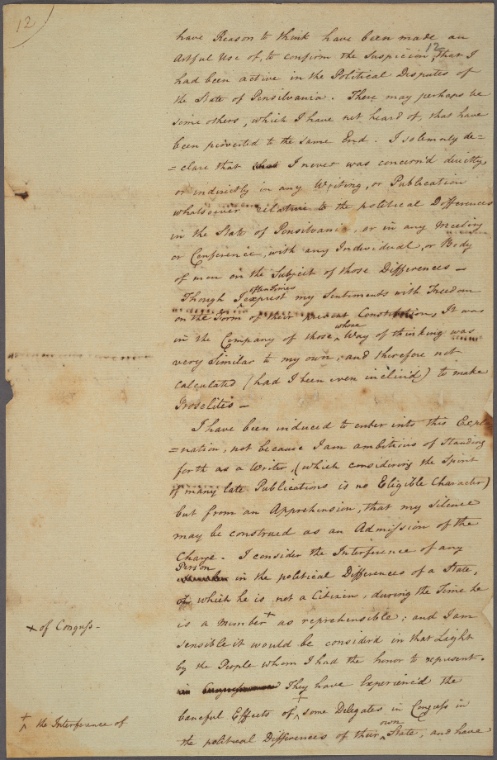 12
have Reason to think have been made an
Artful Use of, to confirm the Suspicion, that I
had been active in the Political Disputes of
the State of Pensilvania. There may perhaps be
some others, which I have not heard of, that have
been perverted to the same End. I solemnly de=
=clare that I never was concern'd directly,
or indirectly in any Writing, or Publication
whatsoever relative to the political Differences
in the State of Pensilvania, or in any Meeting
or Conference, with any Individual, or Body
of men on the Subject of those Differences —
Though I sometimes exprest my Sentiments with Freedom
on the Form of their present Constitution, It was
in the Company of those, whose Way of thinking was
very Similar to my own; and therefore not
calculated (had I been even inclined) to make
Proselites —
I have been induced to enter into this Expl
=nation, not because I am ambitious of Standing
forth as a Writer, (which considering the Spirit
of many late Publications is no Eligible Character)
but from an Apprehension, that my Silence
may be construed as an Admission of the
Charge. I consider the Interference of any
Person
in the political Differences of a State,
of which he is not a Citizen, during the Time he
is a member + as reprehensible; and I am
+ of Congress -
sensible it would be considered in that Light
by the People whom I had the honor to represent.
They have Experienced the
baneful Effects of + some Delegates in Congress in
+ the Interferance of
the political Differences of their own State, and have